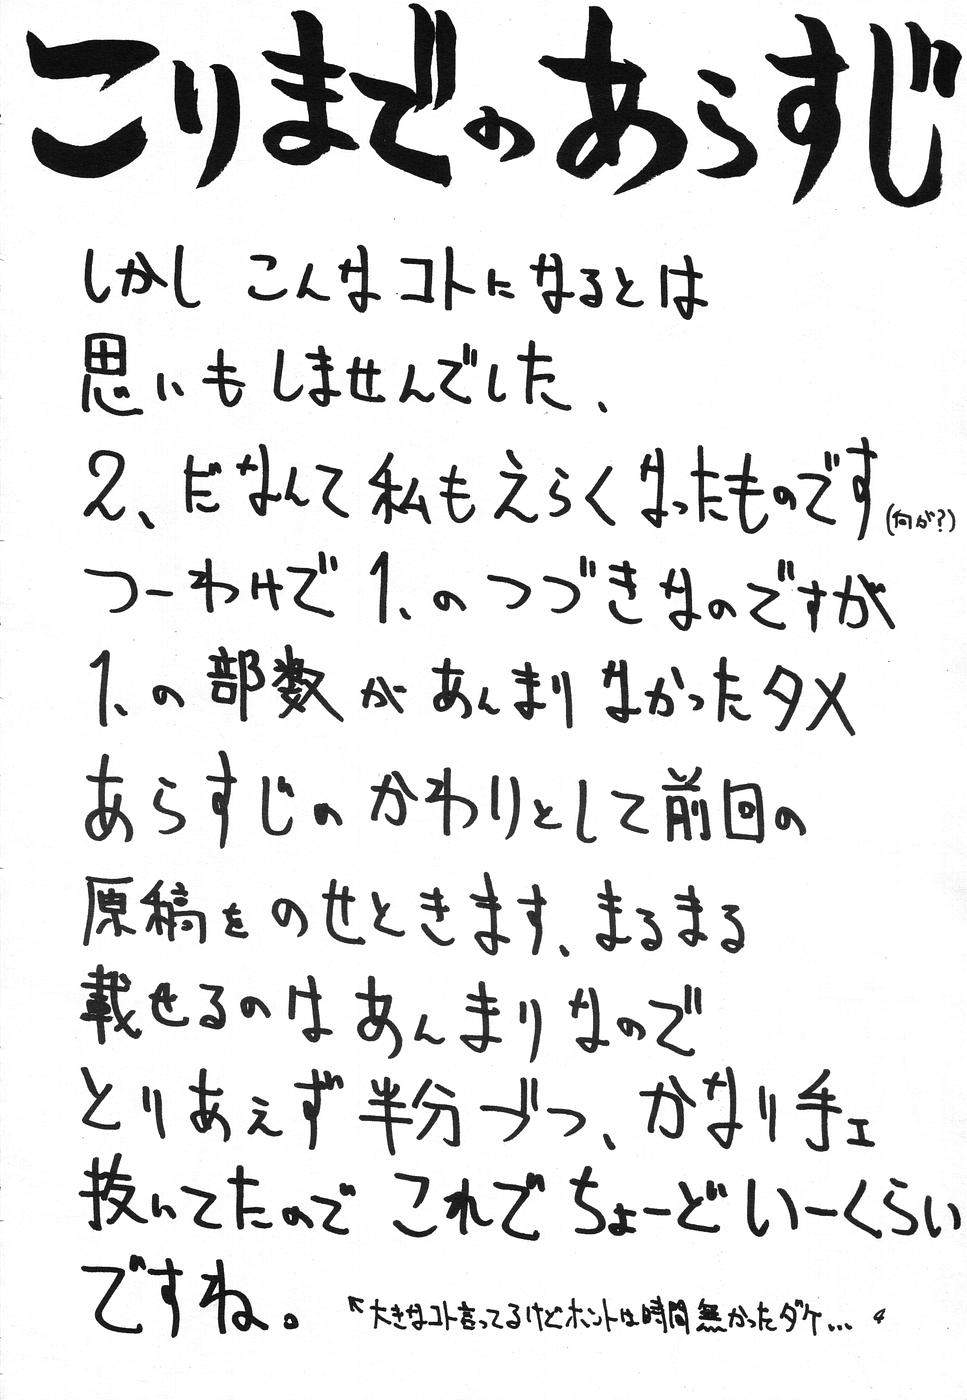 こりまでのあらすじ
しかし こんなコトになるとは
思いもしませんでした、
2、だなんて私もえらくなったものです(何が?)
つーわけで1、のつづきなのですが
1、の部数があんまりなかったタメ
あらすじのかわりとして前回の
原稿をのせときます、まるまる
載せるのはあんまりなので
とりあえず半分づつ、かなり手エ
抜いてたのでこれでちょーどいーくらい
ですね。
↖大きなコト言ってるけどホントは時間無かったダケ…
4